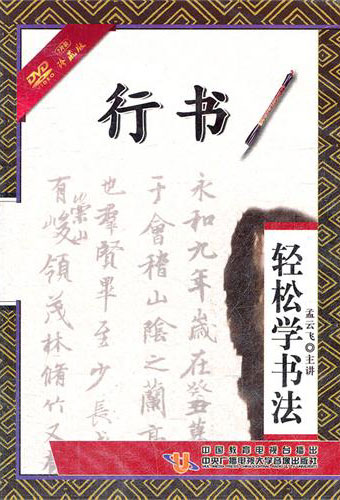 DVD
VIDEO
珍藏版
行书
永和九年歲在癸丑暮
于會稽山陰之蘭亭
也羣賢畢至少長咸
有崇山
峻領茂林脩竹又有
轻松学书法
孟云飞◎主讲
中国教育电视台播出
中央广播电视大学音像出版社